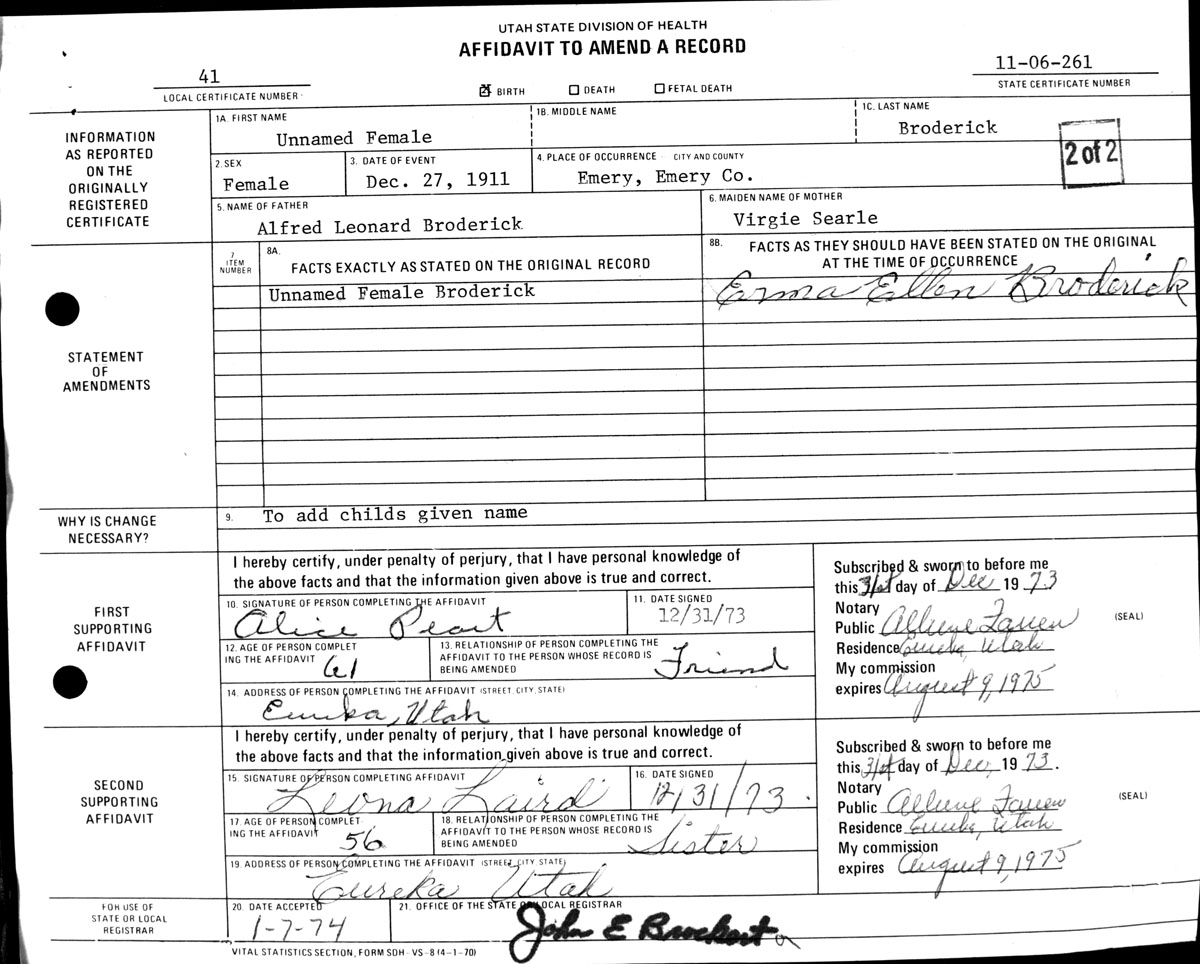 UTAH STATE DIVISION OF HEALTH
AFFIDAVIT TO AMEND A RECORD
41
LOCAL CERTIFICATE NUMBER
☒ BIRTH ☐ DEATH ☐ FETAL DEATH
11-06-261
STATE CERTIFICATE NUMBER
INFORMATION
AS REPORTED
ON THE
ORIGINALLY
REGISTERED
CERTIFICATE
1A. FIRST NAME
Unnamed Female
1B. MIDDLE NAME
1C. LAST NAME
Broderick
2 of 2
2. SEX
Female
3. DATE OF EVENT
Dec. 27, 1911
4. PLACE OF OCCURRENCE CITY AND COUNTY
Emery, Emery Co.
5. NAME OF FATHER
Alfred Leonard Broderick
6. MAIDEN NAME OF MOTHER
Virgie Searle
STATEMENT
OF
AMENDMENTS
7
ITEM
NUMBER
8A.
FACTS EXACTLY AS STATED ON THE ORIGINAL RECORD
8B.
FACTS AS THEY SHOULD HAVE BEEN STATED ON THE ORIGINAL
AT THE TIME OF OCCURRENCE
Unnamed Female Broderick
Erma Ellen Broderick
WHY IS CHANGE
NECESSARY?
9. To add childs given name
FIRST
SUPPORTING
AFFIDAVIT
I hereby certify, under penalty of perjury, that I have personal knowledge of
the above facts and that the information given above is true and correct.
10. SIGNATURE OF PERSON COMPLETING THE AFFIDAVIT
Alice Peart
11. DATE SIGNED
12/31/73
12. AGE OF PERSON COMPLET
ING THE AFFIDAVIT 61
13. RELATIONSHIP OF PERSON COMPLETING THE
AFFIDAVIT TO THE PERSON WHOSE RECORD IS
BEING AMENDED
Friend
14. ADDRESS OF PERSON COMPLETING THE AFFIDAVIT (STREET, CITY, STATE)
Eureka, Utah
Subscribed & sworn to before me
this 31st day of Dec 1973
Notary
Public
(SEAL)
Residence Eureka, Utah
My commission
expires August 9, 1975
SECOND
SUPPORTING
AFFIDAVIT
I hereby certify, under penalty of perjury, that I have personal knowledge of
the above facts and that the information given above is true and correct.
15. SIGNATURE OF PERSON COMPLETING AFFIDAVIT
Leona Laird
16. DATE SIGNED
12/31/73.
17. AGE OF PERSON COMPLET
ING THE AFFIDAVIT 56
18. RELATIONSHIP OF PERSON COMPLETING THE
AFFIDAVIT TO THE PERSON WHOSE RECORD IS
BEING AMENDED
Sister
19. ADDRESS OF PERSON COMPLETING THE AFFIDAVIT (STREET, CITY, STATE)
Eureka Utah
Subscribed & sworn to before me
this 31st day of Dec, 1973.
Notary
Public
(SEAL)
Residence Eureka, Utah
My commission
expires August 9, 1975
FOR USE OF
STATE OR LOCAL
REGISTRAR
20. DATE ACCEPTED
1-7-74
21. OFFICE OF THE STATE OR LOCAL REGISTRAR
John E Brockert
VITAL STATISTICS SECTION, FORM SDH-VS-8 (4-1-70)